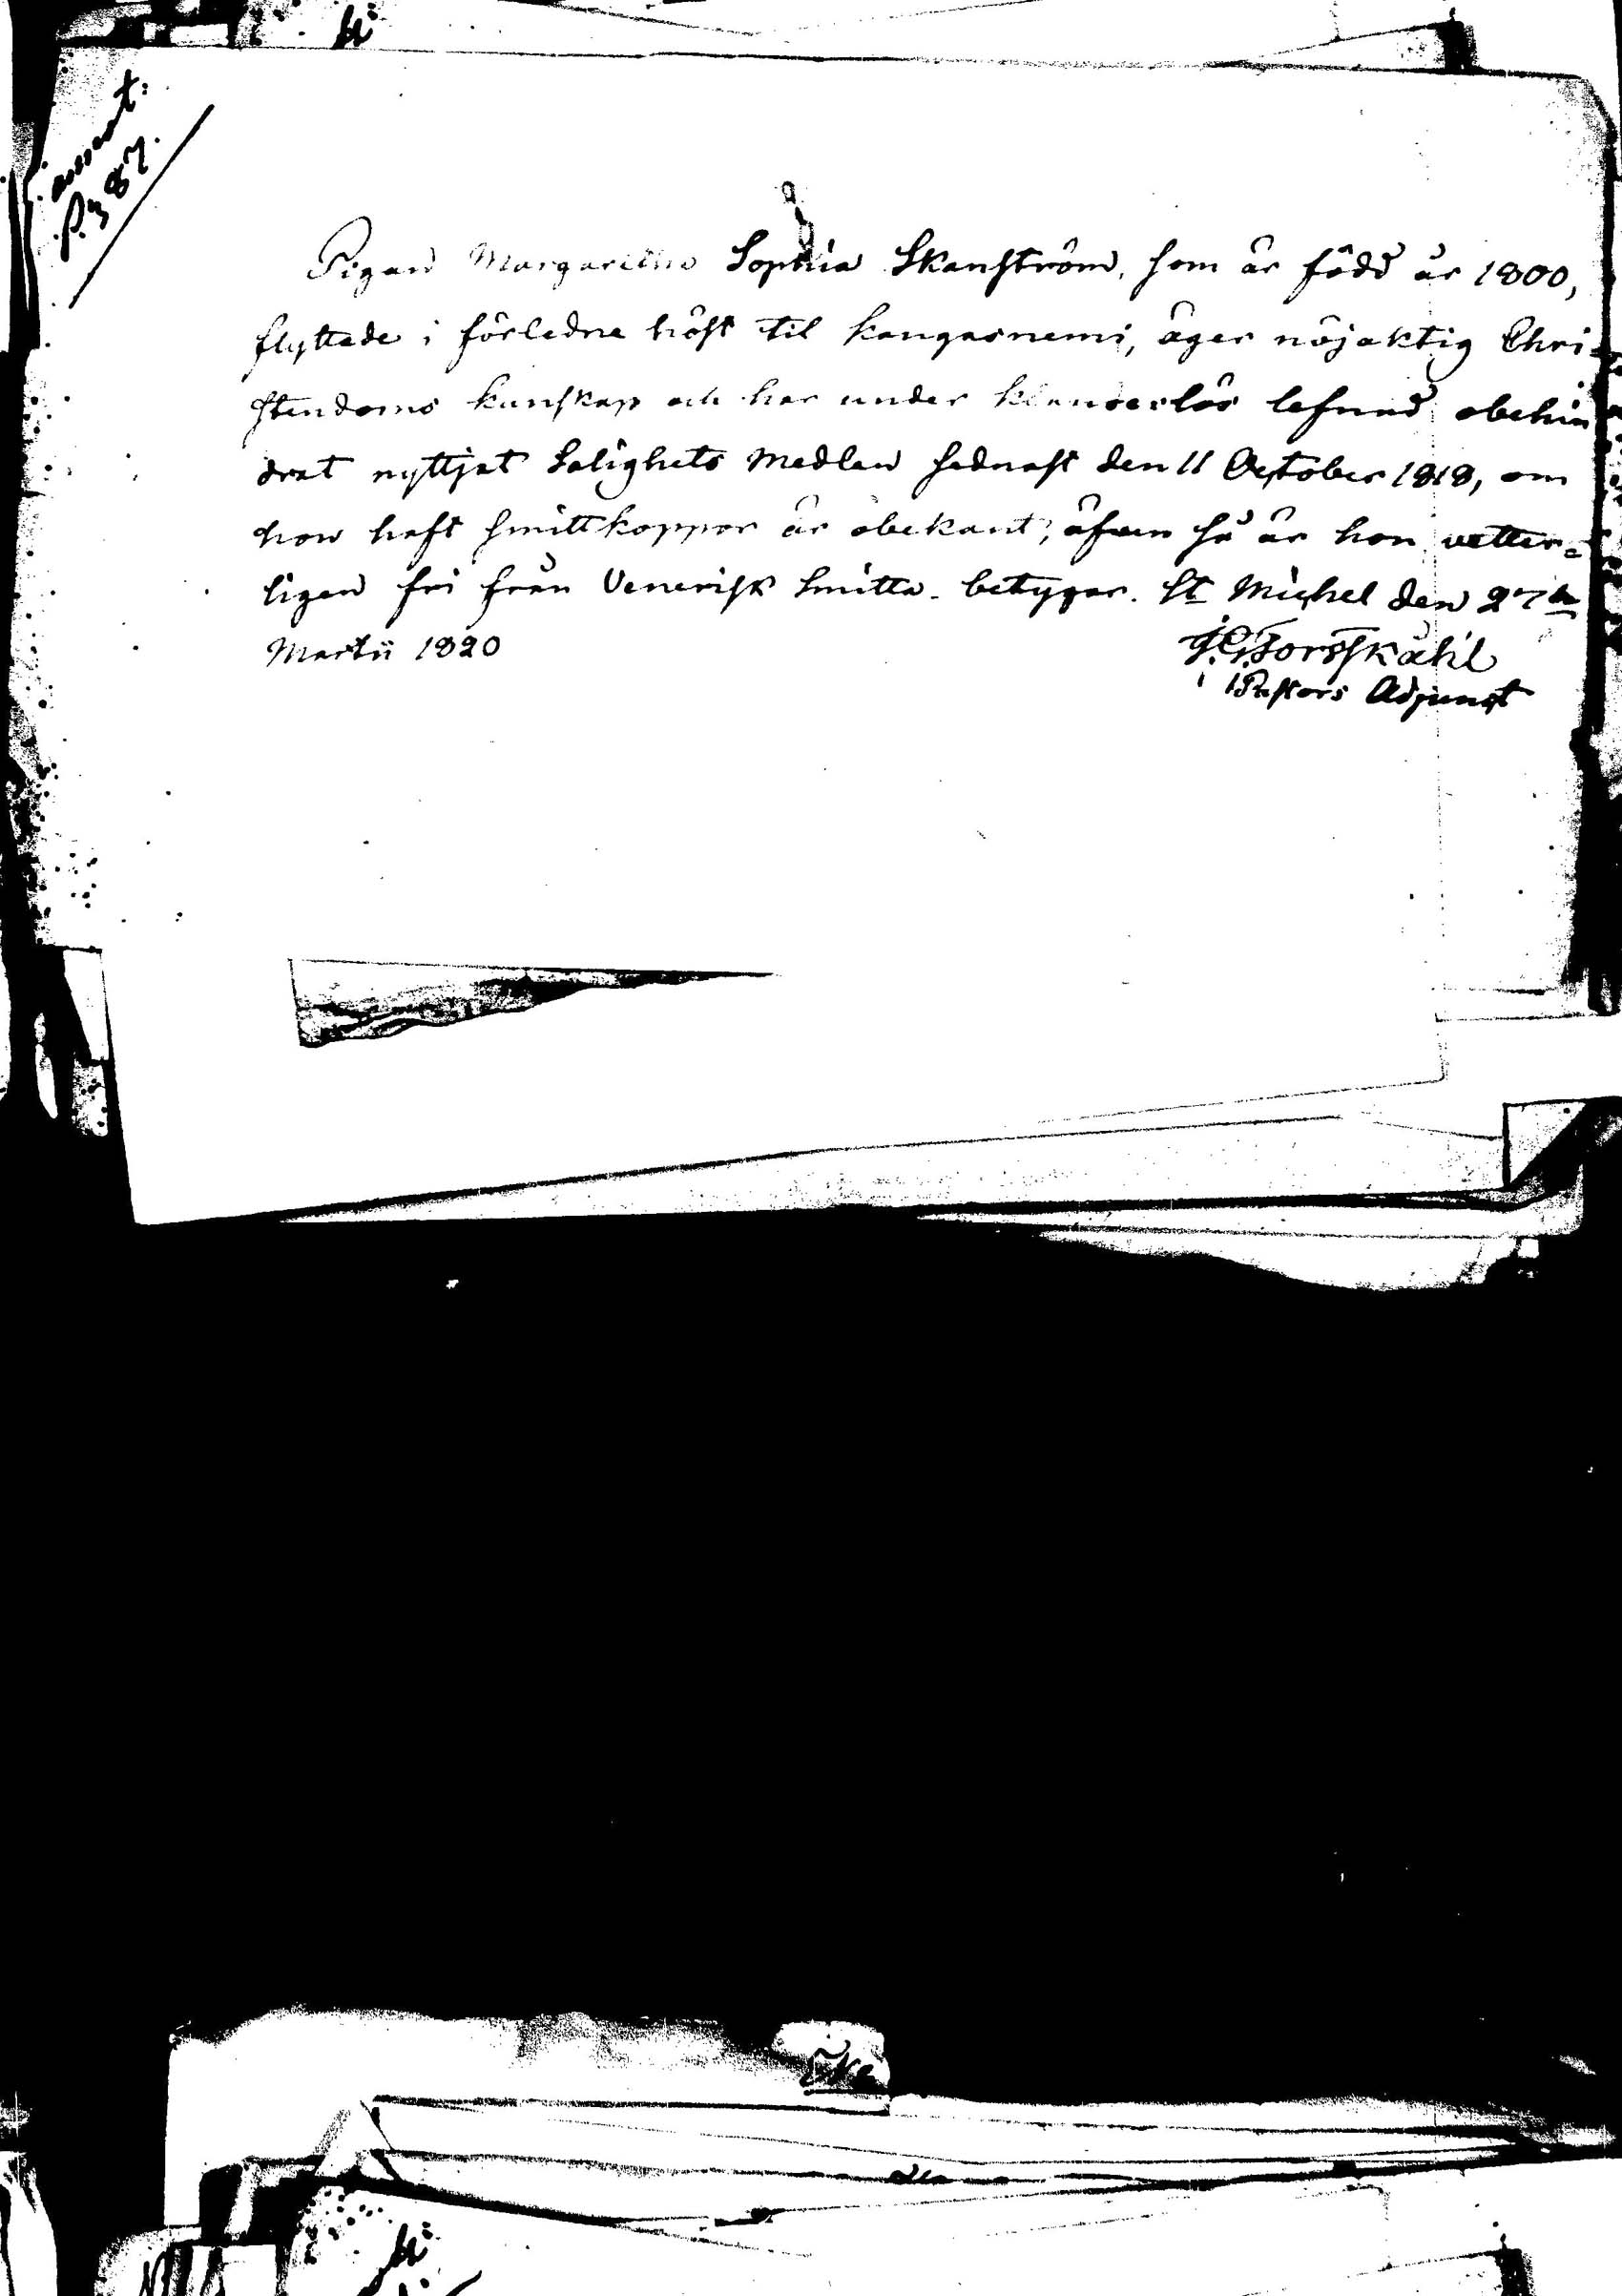 annot:
P. 387.
Pigan Margaretha Sophia Skanström, som är född år 1800,
flyttade i förledne höst til Kangasnemi, äger nöjaktig Chri-
stendoms kunskap och har under klanderlös lefnad obehin
drat nyttjat Salighets Medlen sednast den 11 October 1818, om
hon haft smittkoppor är obekant; äfven så är hon vetter-
ligen fri från Venerisk Smitta. betygar. St Michel den 27de
Martii 1820
J.G. Forsskåhl
Pastors Adjunct